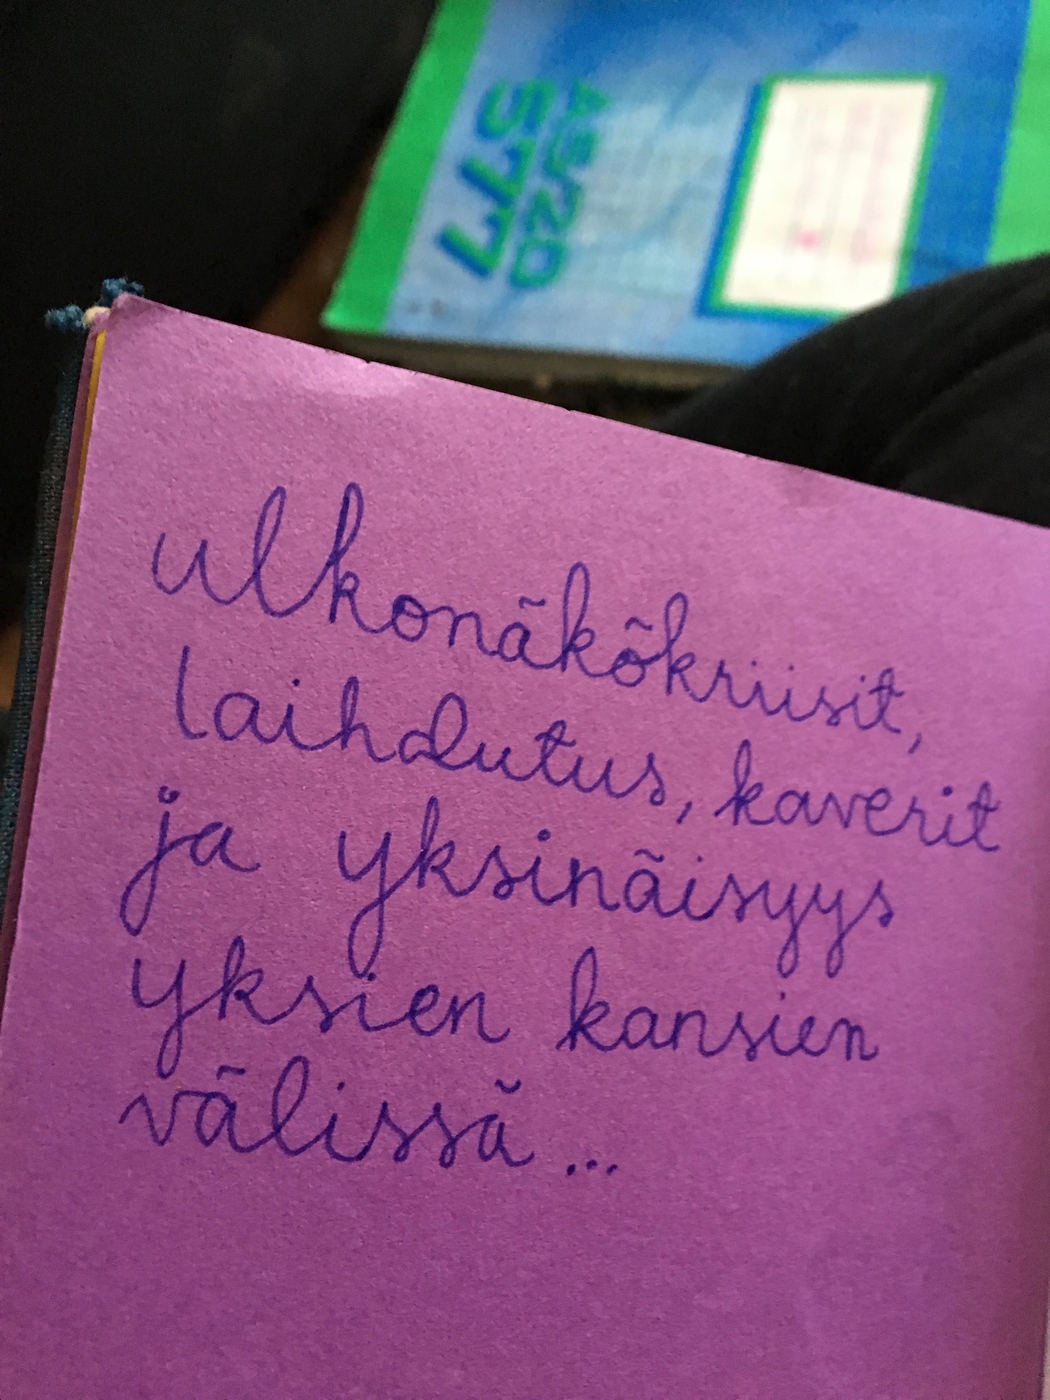 A5/20
577
ulkonäkökriisit,
laihdutus, kaverit
ja yksinäisyys
yksien kansien
välissä...